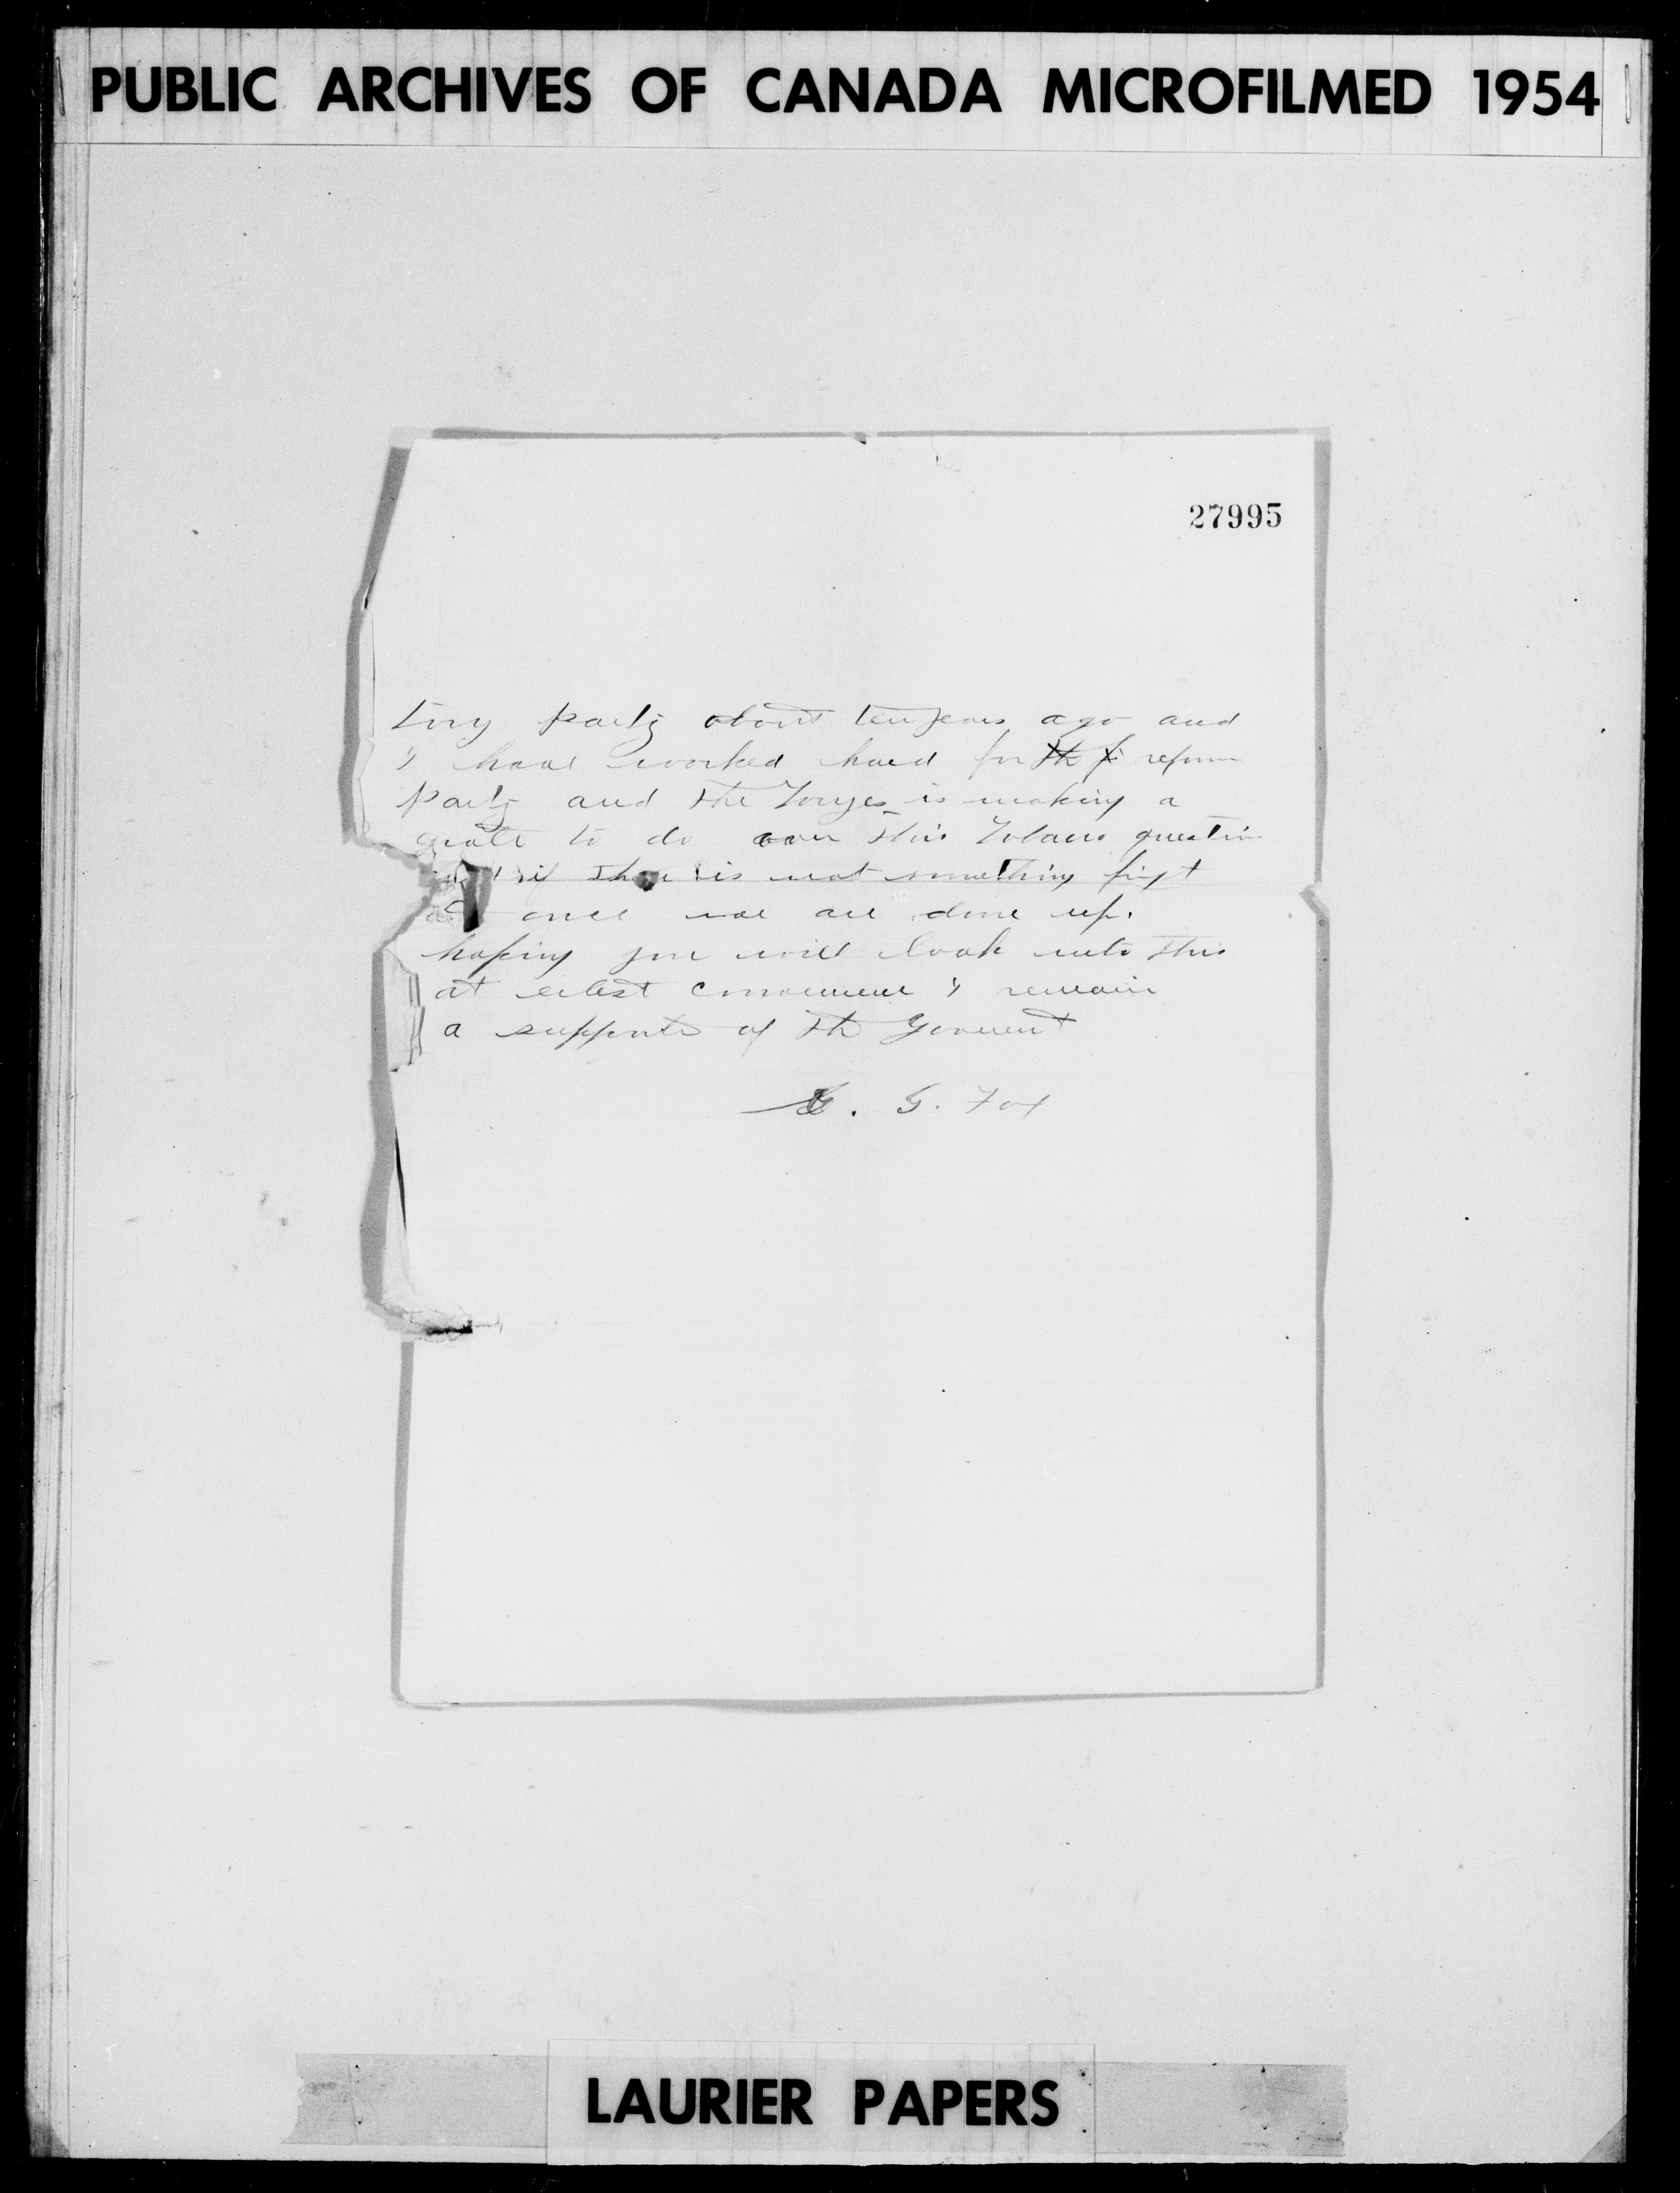 PUBLIC ARCHIVES OF CANADA MICROFILMED 1954
27995
tory party about ten years ago and
I have worked hard for the reform
party and the Toryes is making a
grate to do over this Tobaco question
if there is not something fixt
at once we are done up.
hoping you will look into this
at erlest convenience I remain
a supporter of the Goverment
G. Fox
LAURIER PAPERS